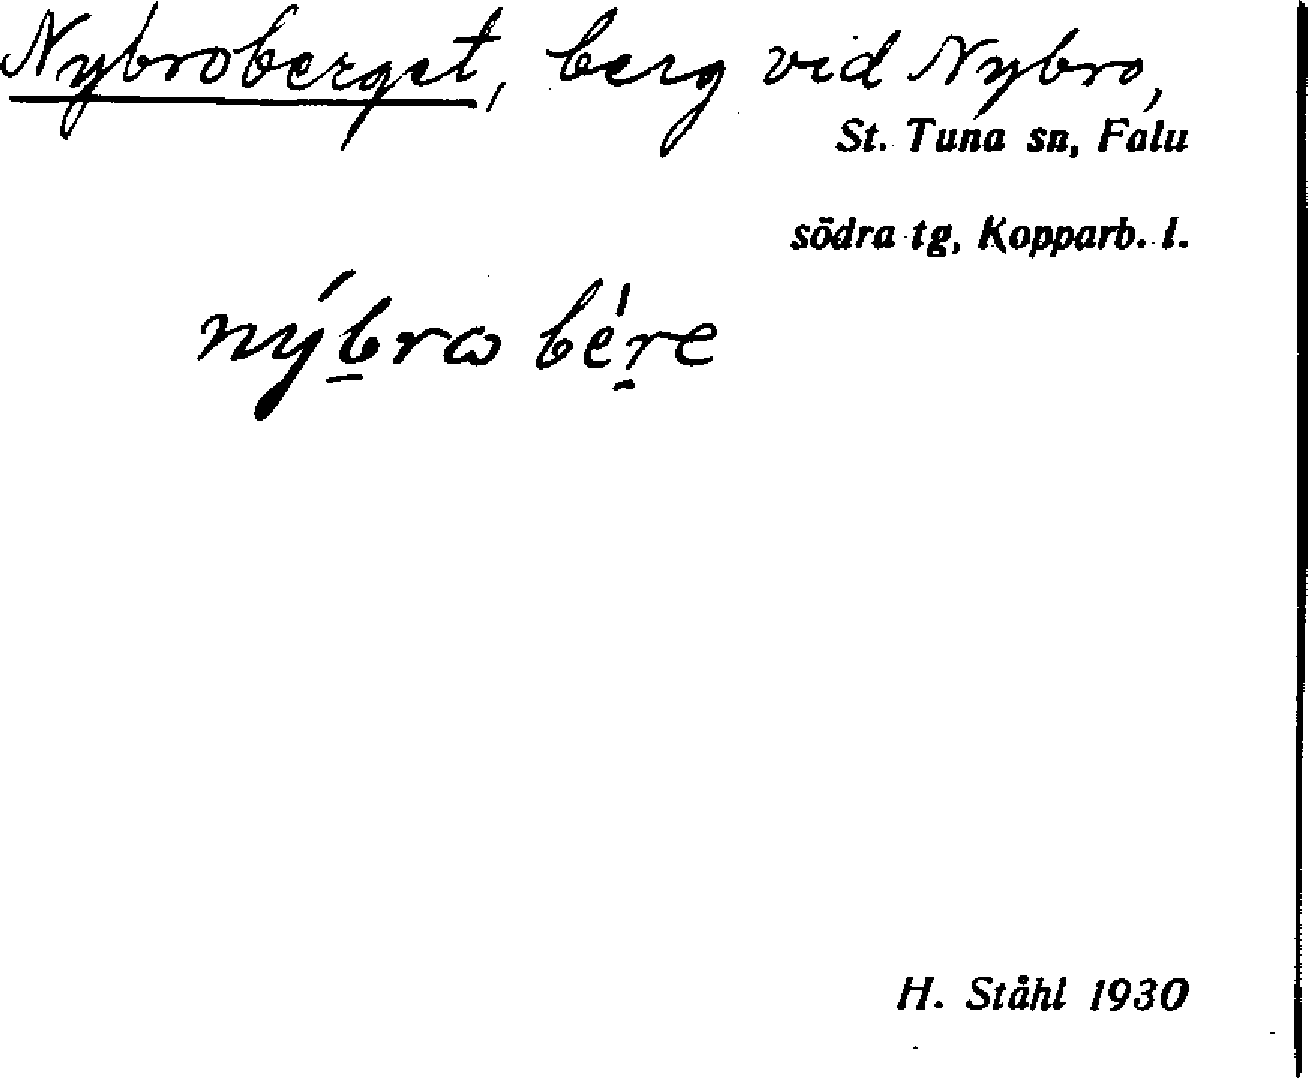 Nybroberget, berg vid Nybro,
St. Tuna sn, Falu
södra tg, Kopparb. l.
nýb̲rω bér̲e
H. Ståhl 1930